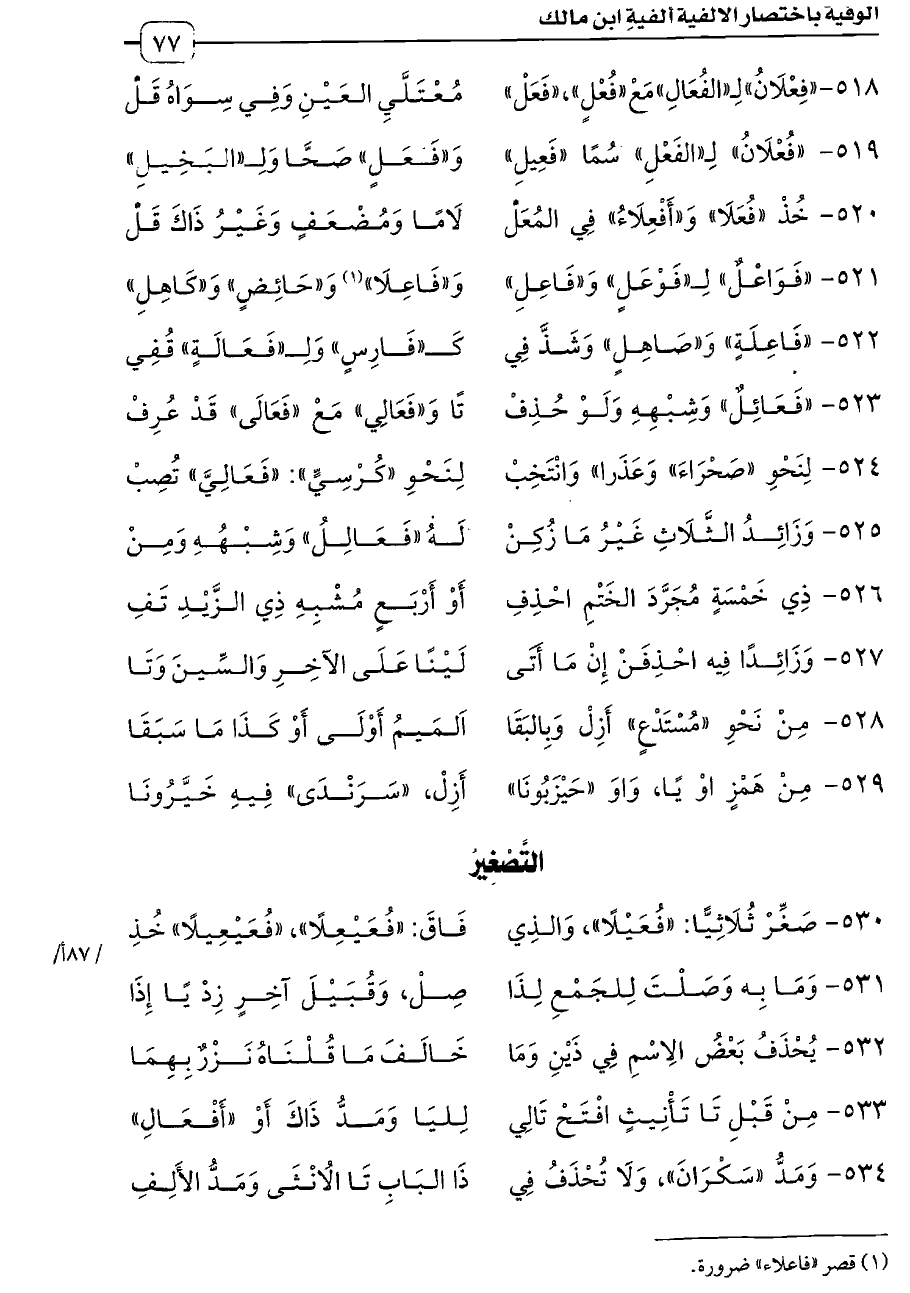 الوفية باختصار الالفية ألفية ابن مالك
٧٧
٥١٨- «فِعْلَانُ» لِـ«الفُعَالِ» مَعْ «فُعْلٍ»، «فَعَلْ» مُعْتَلَّيِ العَيْنِ وَفِي سِوَاهُ قَلْ
٥١٩- «فُعْلَانُ» لِـ«الفَعْلِ» سُمًا «فَعِيلِ» وَ«فَعَلٍ» صَحَّا وَلِـ«البَخِيلِ»
٥٢٠- خُذْ «فُعَلَا» وَ«أَفْعِلَاءُ» فِي المُعَلْ لَامًا وَمُضْعَفٍ وَغَيْرُ ذَاكَ قَلْ
٥٢١- «فَوَاعْلٌ» لِـ«فَوْعَلٍ» وَ«فَاعِلِ» وَ«فَاعِلَا»(١) وَ«حَائِضٍ» وَ«كَاهِلِ»
٥٢٢- «فَاعِلَةٍ» وَ«صَاهِلٍ» وَشَذَّ فِي كَـ«فَارِسٍ» وَلِـ«فَعَالَةٍ» قُفِي
٥٢٣- «فَعَائِلٌ» وَشِبْهِهِ وَلَوْ حُذِفْ تًا وَ«فَعَالِي» مَعْ «فَعَالَى» قَدْ عُرِفْ
٥٢٤- لِنَحْوِ «صَحْرَاءَ» وَعَذرَا» وَانْتَخِبْ لِنَحْوِ «كُرْسِيٍّ»: «فَعَالِيَّ» تُصِبْ
٥٢٥- وَزَائِدُ الثَّلَاثِ غَيْرُ مَا زُكِنْ لَهُ «فَعَالِلُ» وَشِبْهُهُ وَمِنْ
٥٢٦- ذِي خَمْسَةٍ مُجَرَّدَ الخَتْمِ احْذِفِ أَوْ أَرْبَعٍ مُشْبِهِ ذِي الزَّيْدِ تَفِ
٥٢٧- وَزَائِدًا فِيه احْذِفَنْ إِنْ مَا أَتَى لَيْنًا عَلَى الآخِرِ وَالسِّينَ وَتَا
٥٢٨- مِنْ نَحْوِ «مُسْتَدْعٍ» أَزِلْ وَبِالبَقَا اَلمِيمُ أَوْلَى أَوْ كَذَا مَا سَبَقَا
٥٢٩- مِنْ هَمْزٍ اوْ يًا، وَاوَ «حَيْزَبُونَا» أَزِلْ، «سَرَنْدَى» فِيهِ خَيَّرُونَا
التَّصْغِيرُ
٥٣٠- صَغِّرْ ثُلَاثِيًّا: «فُعَيْلًا»، وَالذِي فَاقَ: «فُعَيْعِلًا»، «فُعَيْعِيلًا» خُذِ
/١٨٧أ/
٥٣١- وَمَا بِه وَصَلْتَ لِلجَمْعِ لِذَا صِلْ، وَقُبَيْلَ آخِرٍ زِدْ يًا إِذَا
٥٣٢- يُحْذَفُ بَعْضُ الِاسْمِ فِي ذَيْنِ وَمَا خَالَفَ مَا قُلْنَاهُ نَزْرٌ بِهِمَا
٥٣٣- مِنْ قَبْلِ تَا تَأْنِيثٍ افْتَحْ تَالِي لِليَا وَمَدُّ ذَاكَ أَوْ «أَفْعَالِ»
٥٣٤- وَمَدُّ «سَكْرَانَ»، وَلَا تُحْذَفُ فِي ذَا البَابِ تَا الُانْثَى وَمَدُّ الأَلِفِ
(١) قصر «فاعلاء» ضرورة.